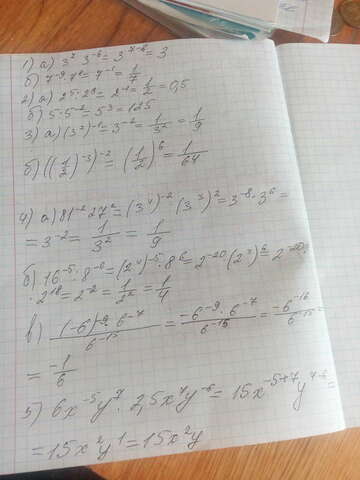 1) а) 3⁷ 3⁻⁶ = 3⁷⁻⁶ = 3
б) 7⁻⁹ 7⁸ = 7⁻¹ = 1/7
2) а) 2⁵ · 2⁻⁶ = 2⁻¹ = 1/2 = 0,5
б) 5 · 5⁻² = 5³ = 125
3) а) (3²)⁻¹ = 3⁻² = 1/3² = 1/9
б) ((1/2)⁻³)⁻² = (1/2)⁶ = 1/64
4) а) 81⁻² 27² = (3⁴)⁻² (3³)² = 3⁻⁸ · 3⁶ =
= 3⁻² = 1/3² = 1/9
б) 16⁻⁵ · 8⁻⁶ = (2⁴)⁻⁵ · 8⁶ = 2⁻²⁰ (2³)⁶ = 2⁻²⁰ ·
· 2¹⁸ = 2⁻² = 1/2² = 1/4
в) (-6)⁻⁹ · 6⁻⁷ / 6⁻¹⁵ = -6⁻⁹ · 6⁻⁷ / 6⁻¹⁵ = -6⁻¹⁶ / 6⁻¹⁵ =
= -1/6
5) 6x⁻⁵y⁷ · 2,5x⁷y⁻⁶ = 15x⁻⁵⁺⁷y⁷⁻⁶ =
= 15x²y¹ = 15x²y